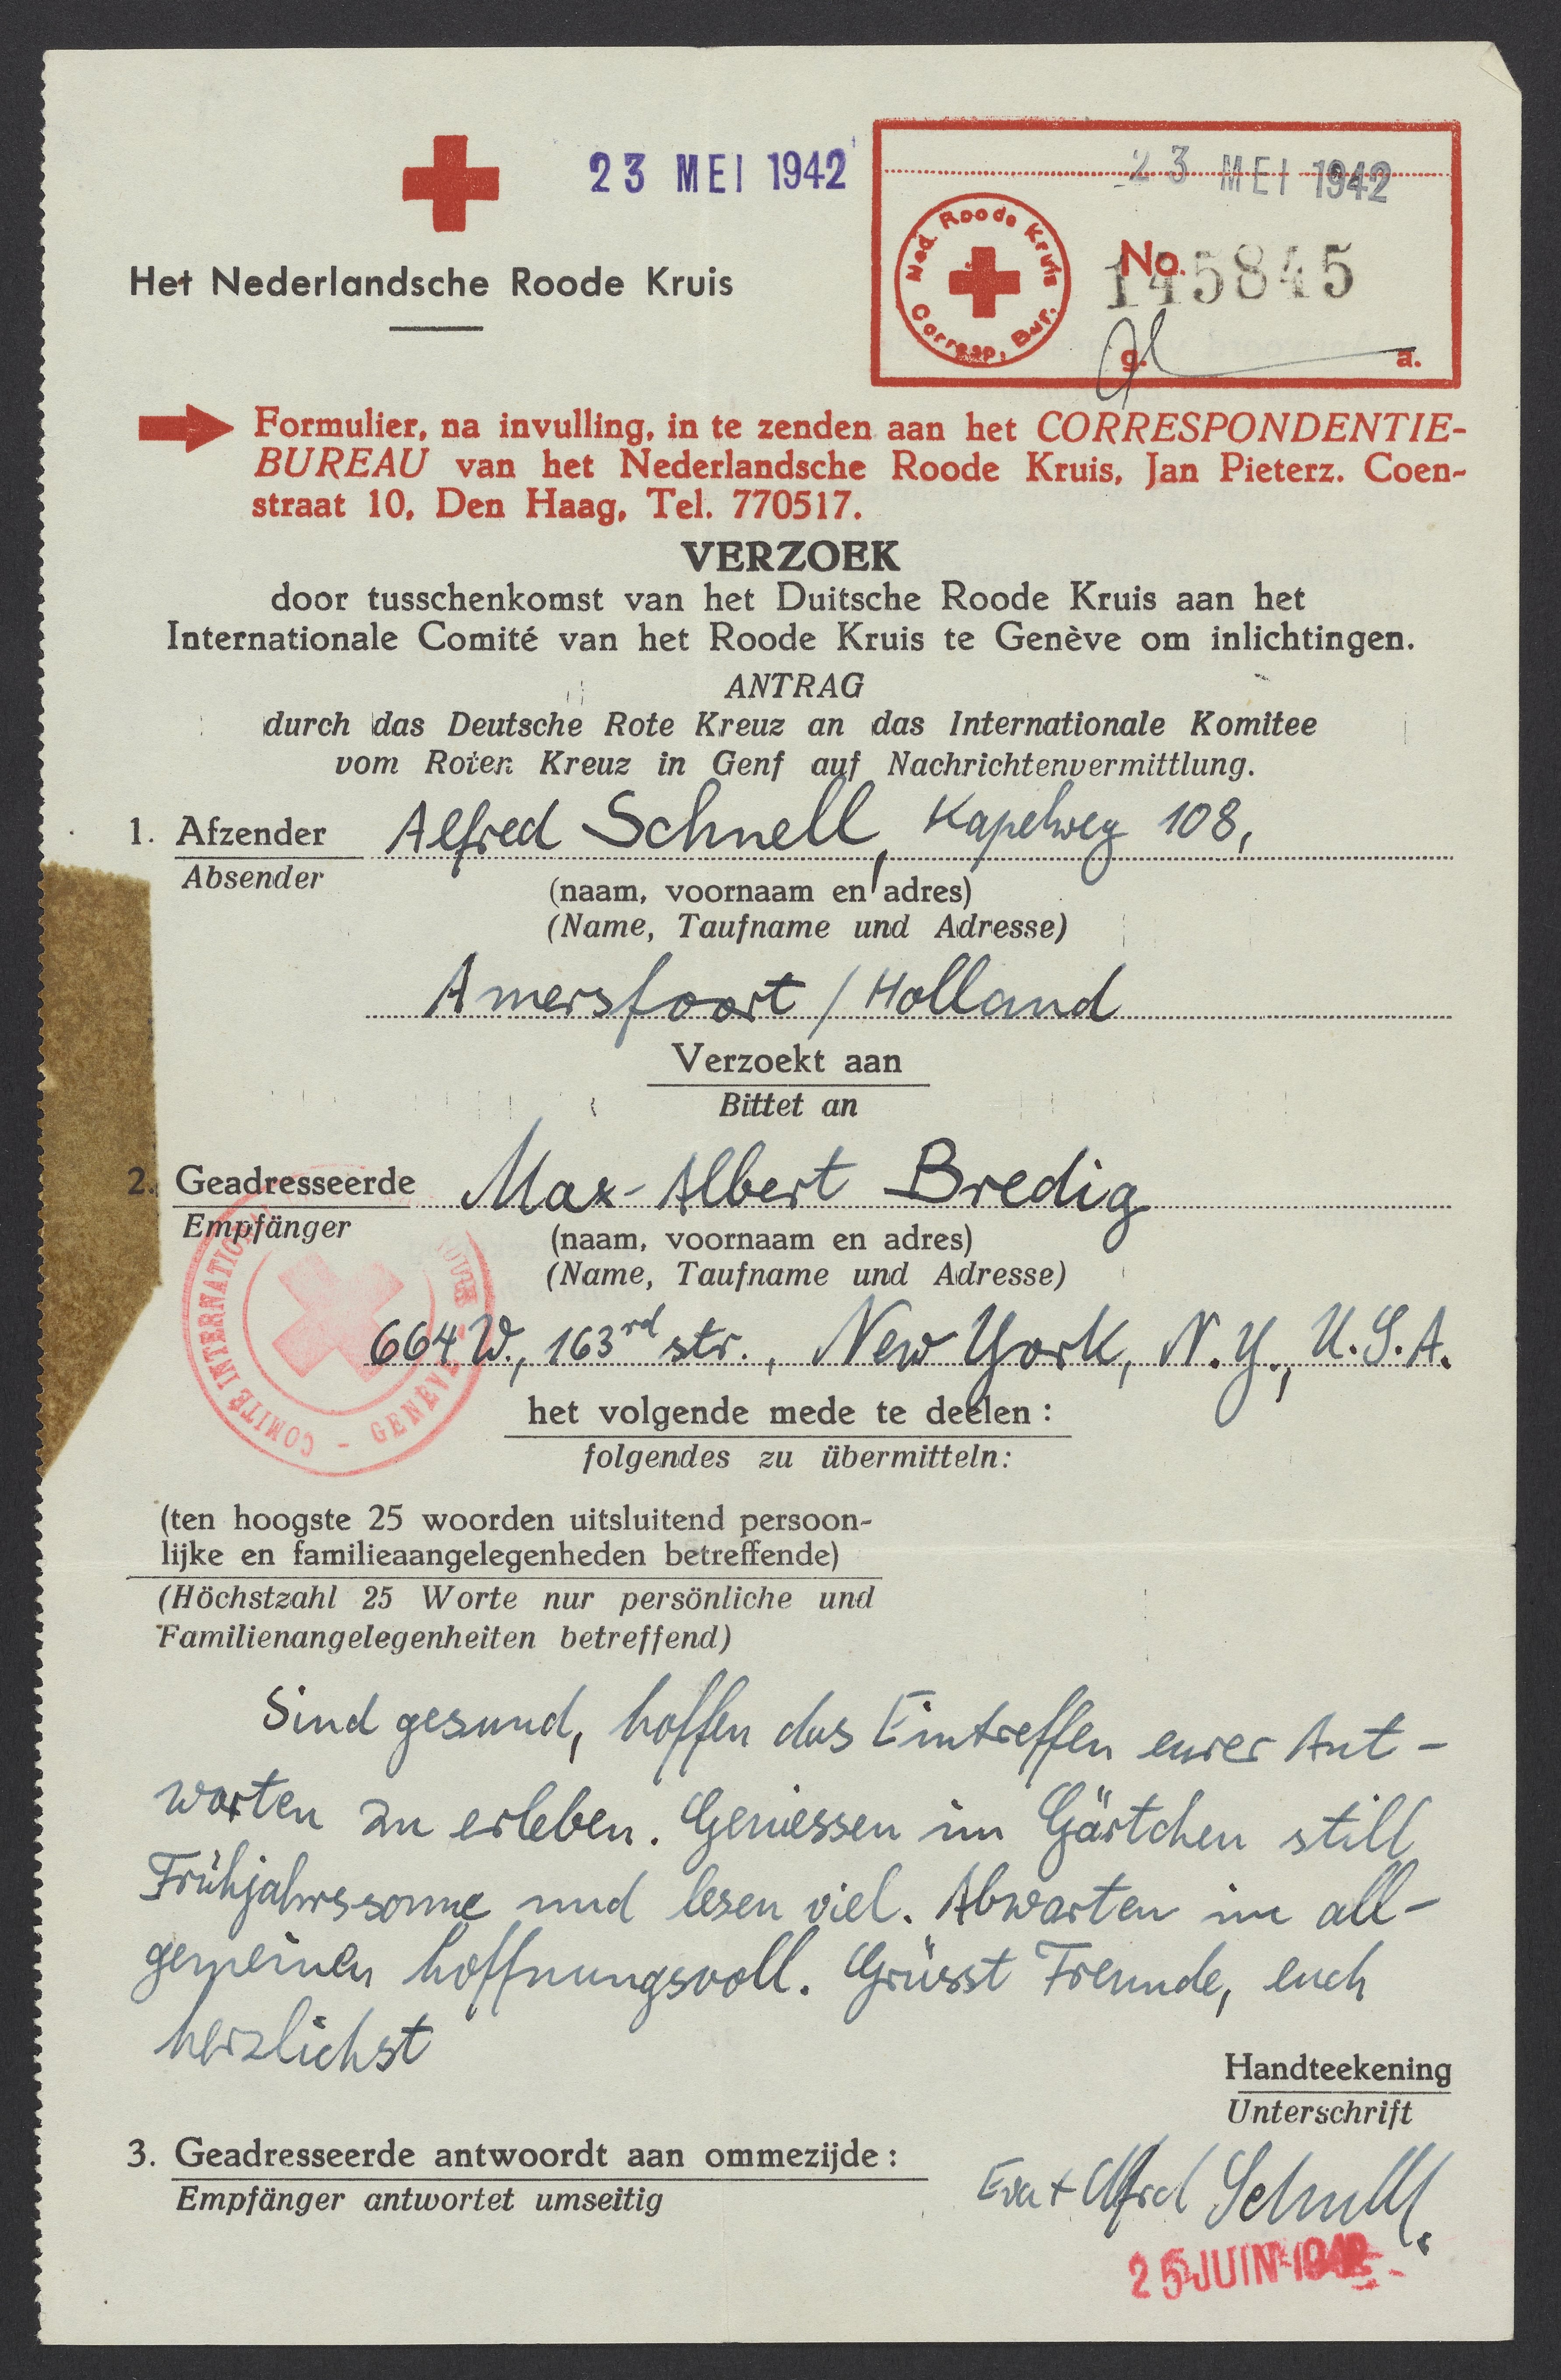 23 MEI 1942
23 MEI 1942
Het Nederlandsche Roode Kruis
Ned. Roode Kruis
Corresp. Bur.
No.
145845
g. a.
Formulier, na invulling, in te zenden aan het CORRESPONDENTIE-
BUREAU van het Nederlandsche Roode Kruis, Jan Pieterz. Coen-
straat 10, Den Haag, Tel. 770517.
VERZOEK
door tusschenkomst van het Duitsche Roode Kruis aan het
Internationale Comité van het Roode Kruis te Genève om inlichtingen.
ANTRAG
durch das Deutsche Rote Kreuz an das Internationale Komitee
vom Roten Kreuz in Genf auf Nachrichtenvermittlung.
1. Afzender Alfred Schnell, Kapelweg 108,
Absender
(naam, voornaam en adres)
(Name, Taufname und Adresse)
Amersfoort / Holland
Verzoekt aan
Bittet an
2. Geadresseerde Max-Albert Bredig
Empfänger
(naam, voornaam en adres)
(Name, Taufname und Adresse)
COMITE INTERNATIONAL
GENEVE
664 W., 163rd str., New York, N.Y., U.S.A.
het volgende mede te deelen:
folgendes zu übermitteln:
(ten hoogste 25 woorden uitsluitend persoon-
lijke en familieaangelegenheden betreffende)
(Höchstzahl 25 Worte nur persönliche und
Familienangelegenheiten betreffend)
Sind gesund, hoffen das Eintreffen eurer Ant-
worten zu erleben. Geniessen im Gärtchen still
Frühjahrssonne und lesen viel. Abwarten im all-
gemeinen hoffnungsvoll. Grüsst Freunde, euch
herzlichst
Handteekening
Unterschrift
3. Geadresseerde antwoordt aan ommezijde:
Empfänger antwortet umseitig
Eva + Alfred Schnell.
25 JUIN 1942